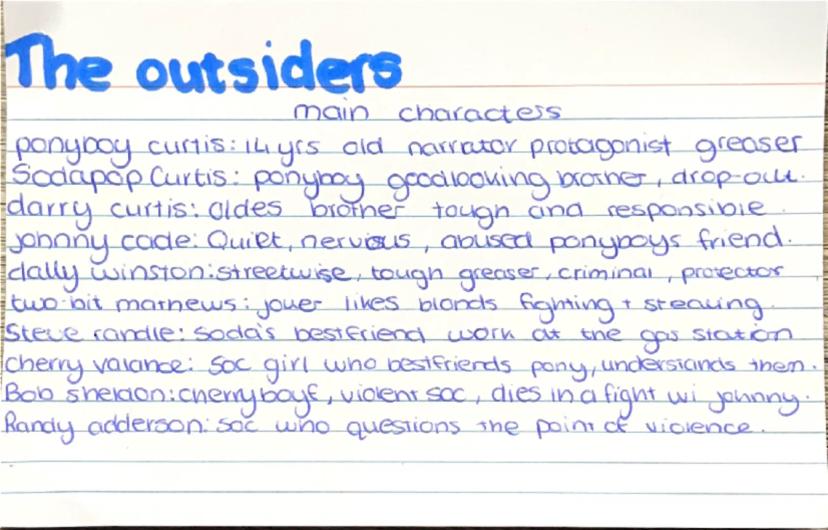 The outsiders
main characters
ponyboy curtis: 14 yrs old narrator protagonist greaser
Sodapop Curtis: ponyboy goodlooking brother, drop-out.
darry curtis: oldes brother tough and responsible.
johnny cade: Quiet, nervious, abused ponyboys friend.
dally winston: streetwise, tough greaser, criminal, protector,
two-bit mathews: joker likes blonds fighting + stealing.
Steve randle: Soda's bestfriend work at the gas station
cherry valance: soc girl who bestfriends pony, understands them.
Bob sheldon: cherry boyf, violent soc, dies in a fight w/ johnny.
Randy adderson: soc who questions the point of violence.